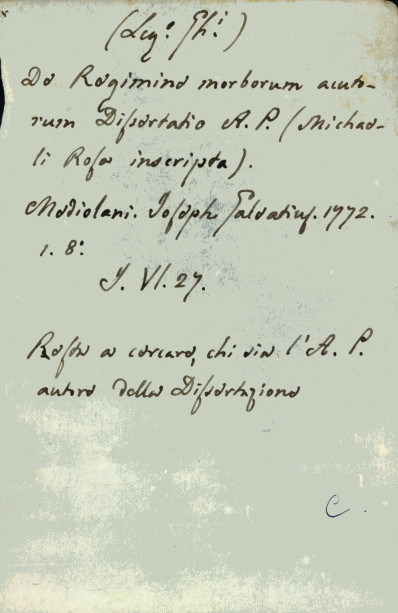 (Leg.º Gh.i)
De Regimine morborum acuto-
rum Dissertatio A. P. (Michae-
li Rosa inscripta).
Mediolani. Joseph Galeatius. 1772.
1. 8.º
Y. VI. 27.
Resta a cercare, chi sia l'A. P.
autore della Dissertazione
C.